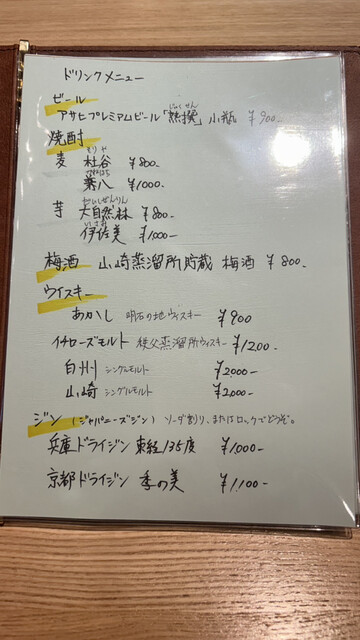 ドリンクメニュー
ビール
じゅくせん
アサヒプレミアムビール「熟撰」小瓶 ¥900-
焼酎
もりや
麦 杜谷 ¥800-
兼八 ¥1000-
だいしぜんりん
芋 大自然林 ¥800-
いさみ
伊佐美 ¥1000-
梅酒 山崎蒸溜所貯蔵 梅酒 ¥800-
ウイスキー
あかし 明石の地ウィスキー ¥900
イチローズモルト 秩父蒸溜所ウィスキー ¥1200-
白州 シングルモルト ¥2000-
山崎 シングルモルト ¥2000-
ジン (ジャパニーズジン) ソーダ割り、またはロックでどうぞ。
兵庫ドライジン 東経135度 ¥1000-
京都ドライジン 季の美 ¥1,100-